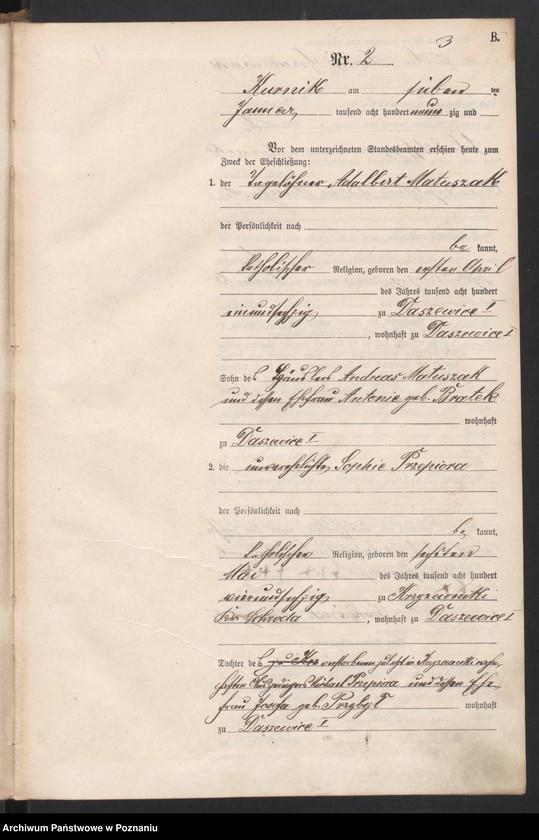 B.
3
Nr. 2
Kurnik am sieben ten
Januar tausend acht hundert neun zig und
Vor dem unterzeichneten Standesbeamten erschien heute zum
Zweck der Eheschließung:
1. der Tagelöhner Adalbert Matuszak
der Persönlichkeit nach
be kannt,
katholischer Religion, geboren den ersten April
des Jahres tausend acht hundert
einundsechzig zu Daszewice I
, wohnhaft zu Daszewice I
Sohn des Häuslers Andreas Matuszak
und dessen Ehefrau Antonie geb. Bratek
wohnhaft
zu Daszewice I
2. die unverehelichte Sophie Przepiora
der Persönlichkeit nach
be kannt,
katholischer Religion, geboren den sechsten
Mai des Jahres tausend acht hundert
vierundsechzig zu Krzyzanniki
Kr. Schroda, wohnhaft zu Daszewice I
Tochter des verstorbenen zuletzt in
haften Michael Przepiora und dessen Ehe
frau Josefa geb. Przybył wohnhaft
zu Daszewice I
Archiwum Państwowe w Poznaniu